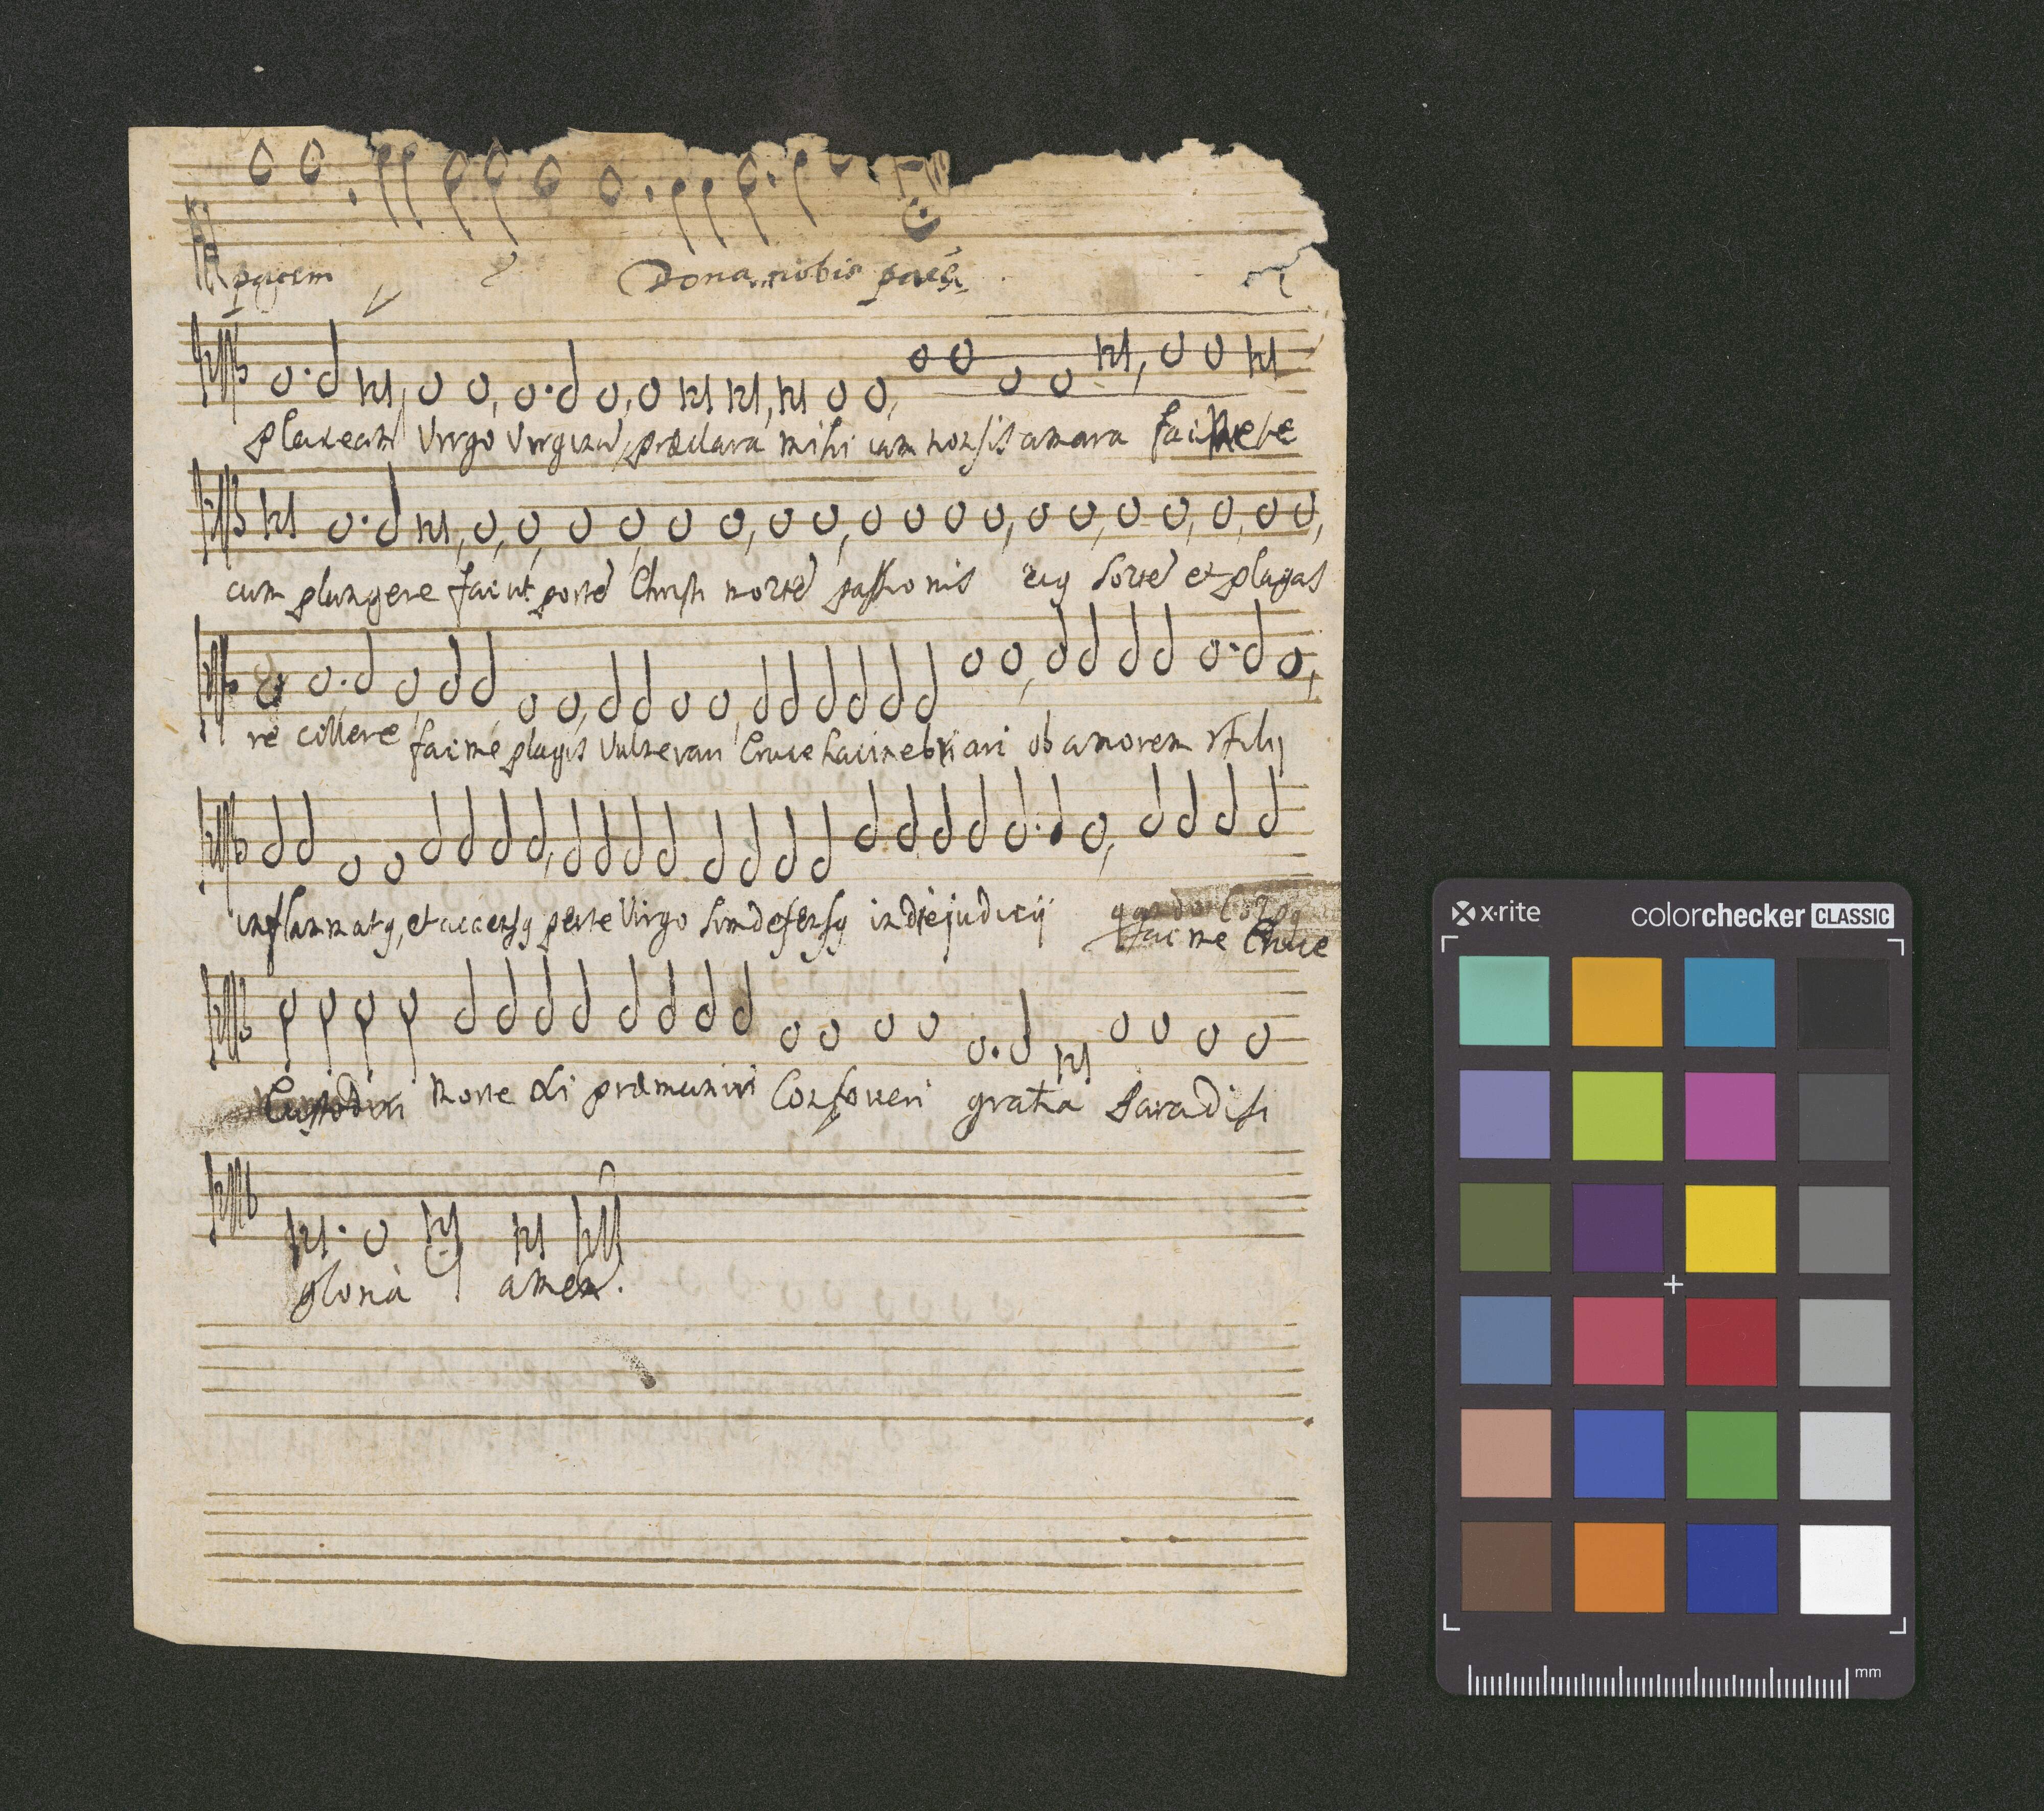 pacem Dona nobis pacē
placeam Virgo Virginū præclara mihi iam non sis amara fac me te
cum plangere fac ut portē Christi mortē passionis eiꝯ sortē et plagas
re collere fac me plagis vulnerari Cruce hac inebriari ob amorem Filij
inflammatꝯ, et accensꝯ per te Virgo sim defensꝯ in die judicij fac me Cruce
Custodiri morte Xi præmuniri Confoveri gratia Paradisi
gloria amen.
x-rite colorchecker CLASSIC
mm